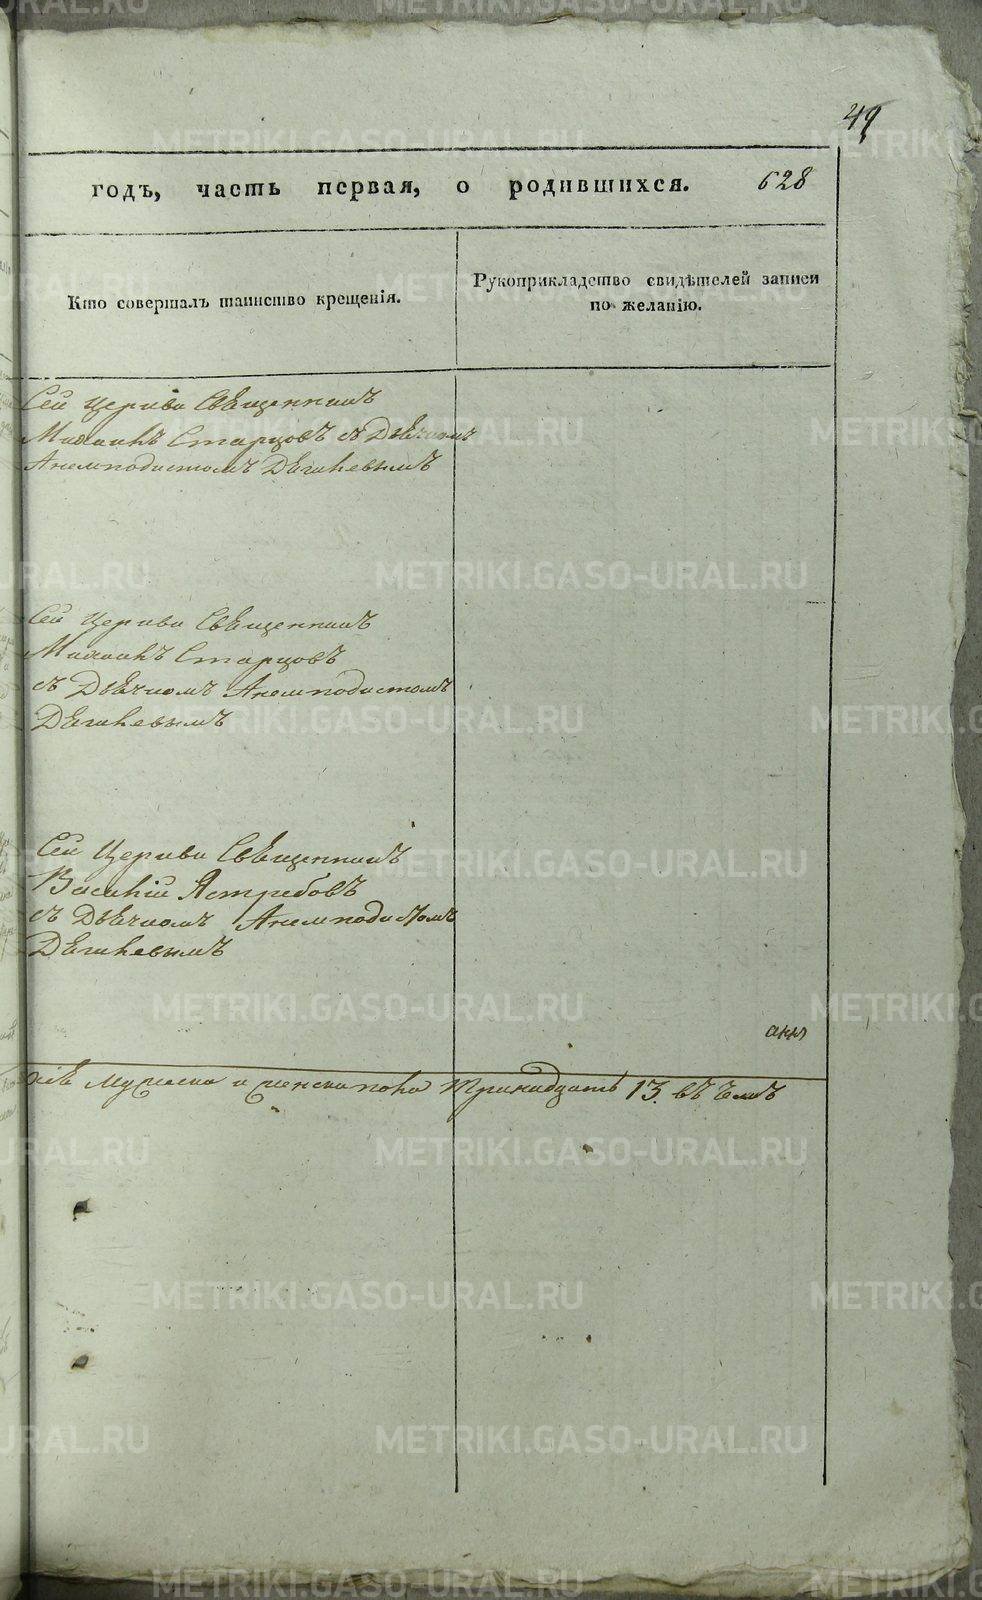 49
годъ, часть первая, о родившихся. 628
Кто совершалъ таинство крещенія.
Рукоприкладство свидѣтелей записи
по желанію.
Сей Церкви Священникъ
Михаилъ Старцовъ съ Дьячкомъ
Анемподистомъ Дягилевымъ
Сей Церкви Священникъ
Михаилъ Старцовъ
съ Дьячкомъ Анемподистомъ
Дягилевымъ
Сей Церкви Священникъ
Василій Ястребовъ
съ Дьячкомъ Анемподистомъ
Дягилевымъ
мужеска и женска пола тринадцать 13.
METRIKI.GASO-URAL.RU